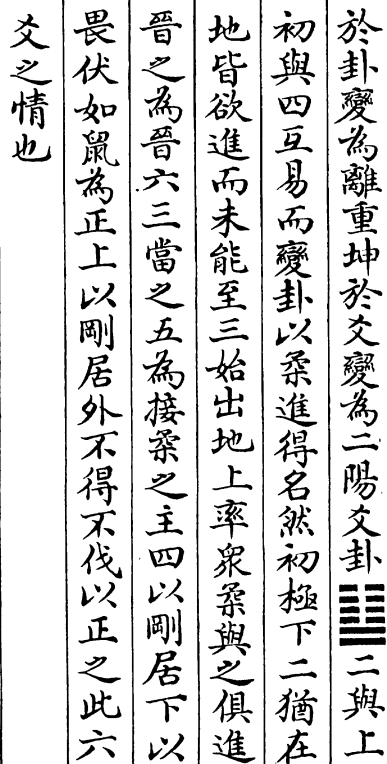 於卦變為離重坤於爻變為二陽爻卦䷒二與上
初與四互易而變卦以柔進得名然初極下二猶在
地皆欲進而未能至三始出地上率衆柔與之俱進
晉之為晉六三當之五為接柔之主四以剛居下以
畏伏如鼠為正上以剛居外不得不伐以正之此六
爻之情也